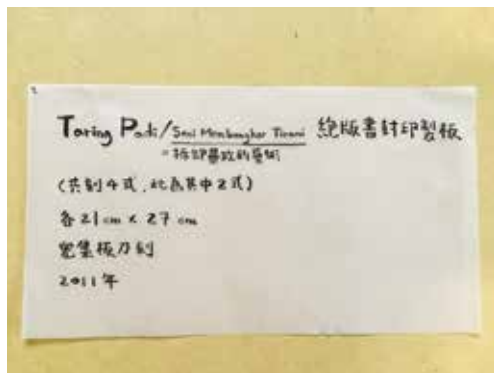 Taring Padi/Seni Membongkar Tirani 絕版書封印製板
=拆卸暴政的藝術
(共刻4式,此為其中2式)
各21cm x 27cm
密集板刀刻
2011年